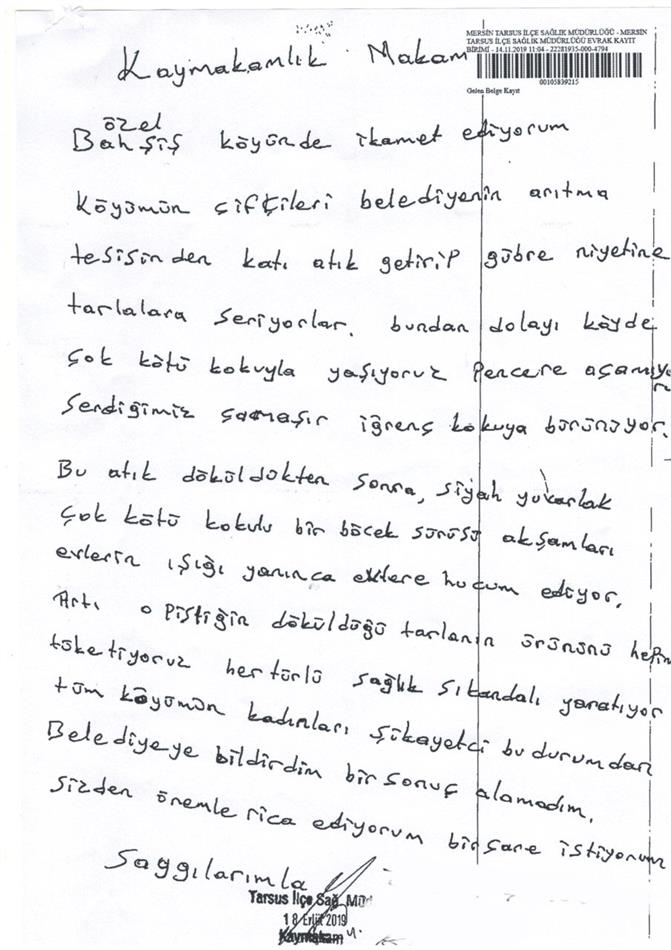 MERSİN TARSUS İLÇE SAĞLIK MÜDÜRLÜĞÜ - MERSİN
TARSUS İLÇE SAĞLIK MÜDÜRLÜĞÜ EVRAK KAYIT
BİRİMİ - 14.11.2019 11:04 - 22281935-000-4794
00105839215
Gelen Belge Kayıt
Kaymakamlık Makam
özel
Bahşiş köyünde ikamet ediyorum
Köyümün çifçileri belediyenin arıtma
tesisinden katı atık getirip gübre niyetine
tarlalara seriyorlar. bundan dolayı köyde
çok kötü kokuyla yaşıyoruz Pencere açamıyor
Serdiğimiz çamaşır iğrenç kokuya bürünüyor.
Bu atık döküldükten sonra, siyah yuvarlak
çok kötü kokulu bir böcek sürüsü akşamları
evlerin ışığı yanınca evlere hucum ediyor.
Artı o pistiğin döküldüğü tarlanın ürününü hepim
tüketiyoruz hertürlü sağlık sıkandalı yaratıyor
tüm köyümün kadınları şikayetci bu durumdan
Belediyeye bildirdim bir sonuç alamadım.
Sizden önemle rica ediyorum bir çare istiyorum
Saygılarımla
Tarsus İlçe Sağ. Müd
18 Eylül 2019
Kaymakam